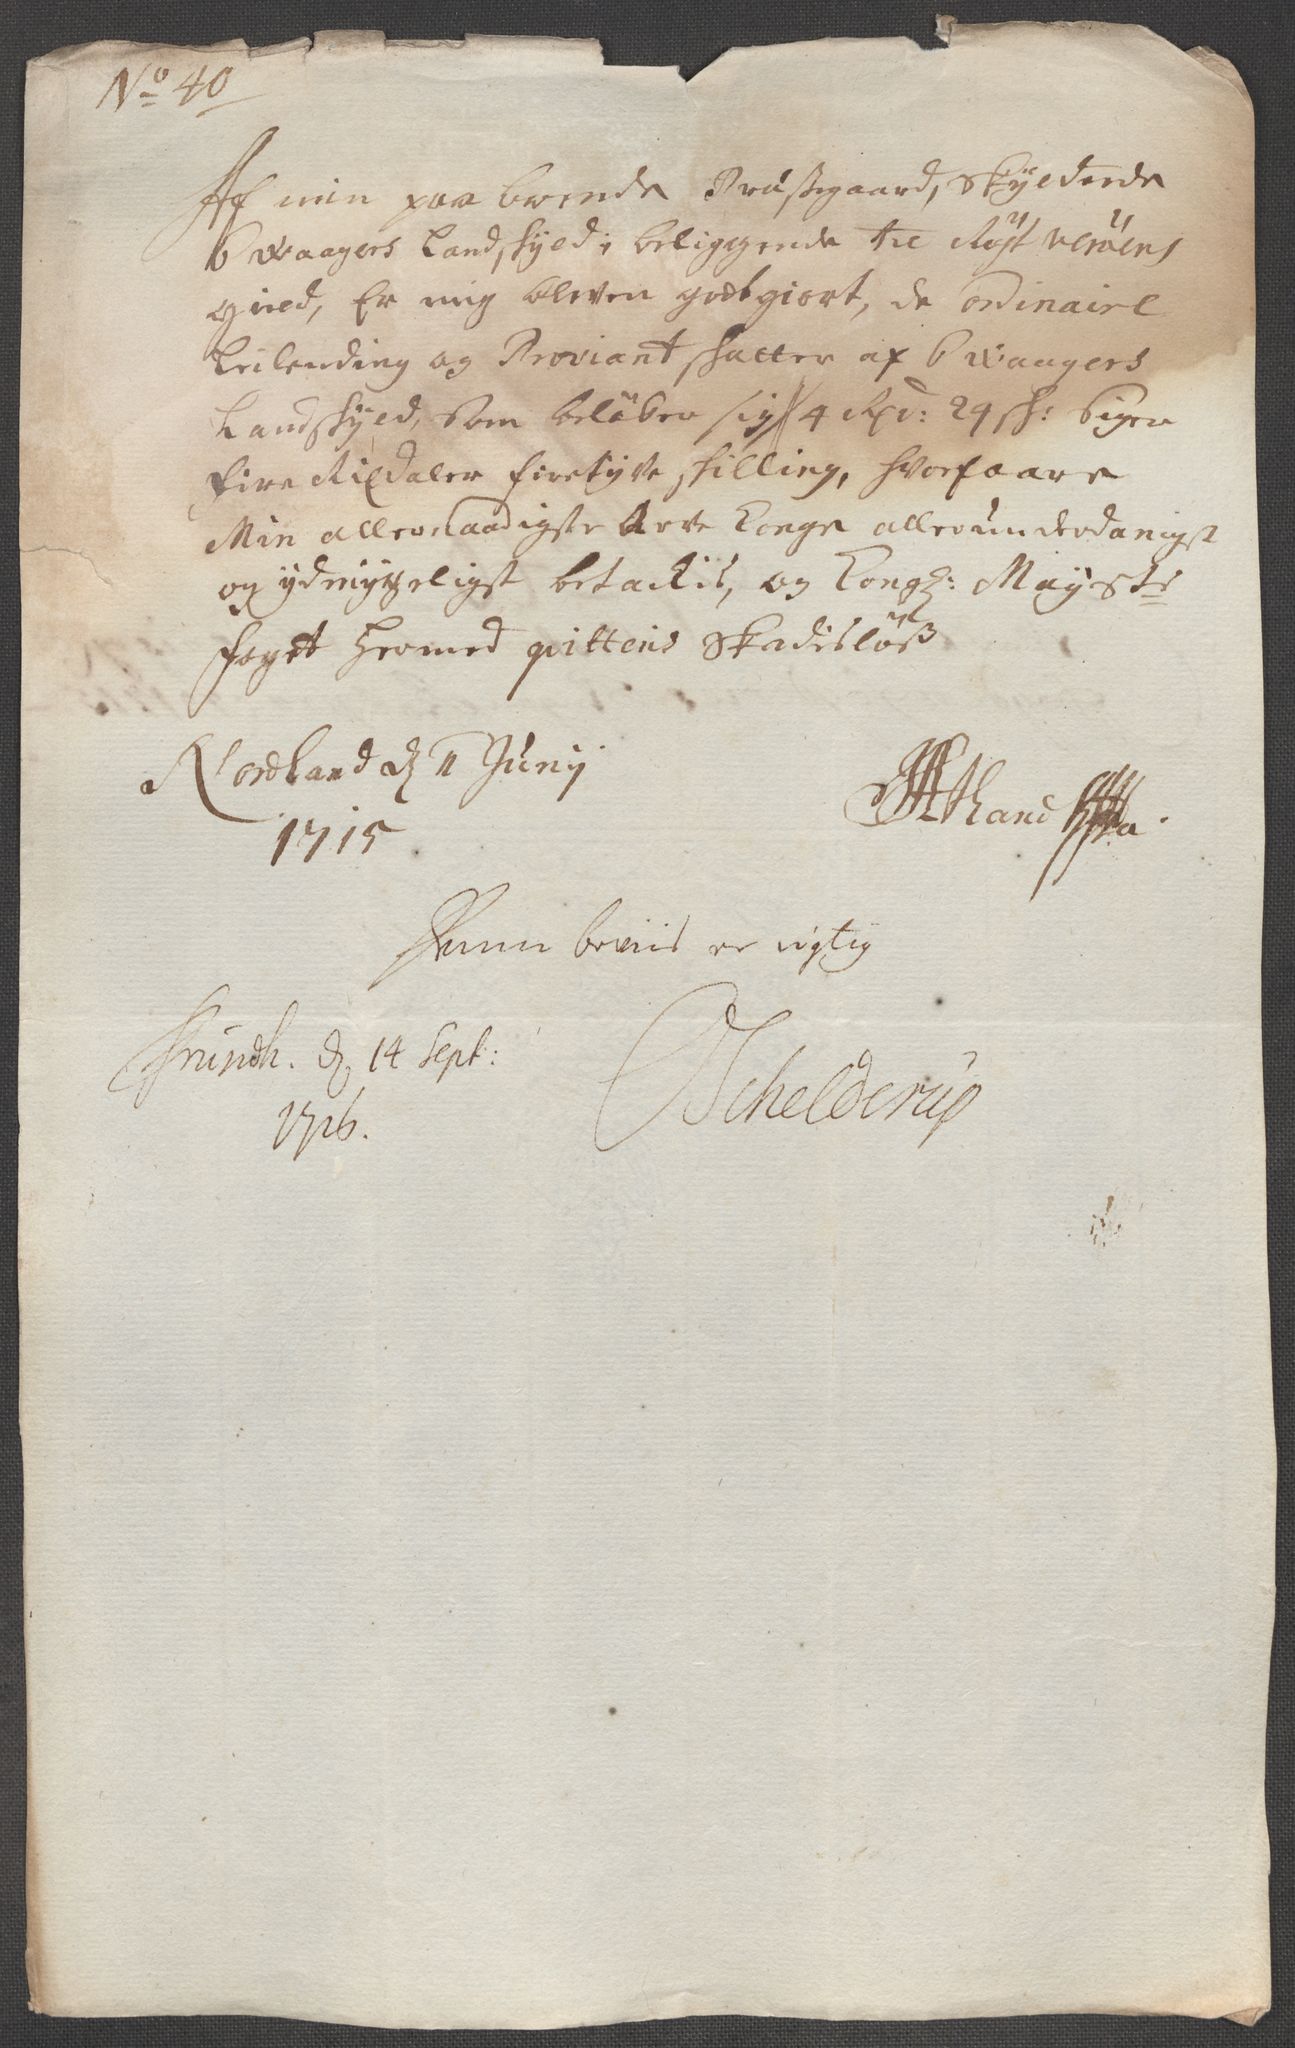 No 40
Af min paa boende Præstegaard, Skyldende
6 Waagers Landskyld, beliggende til Røst Werøens
gield, Er mig bleven godtgiort, de ordinaire
Leilending og Proviant skatter af 6 Waagers
Landskyld, som beløber sig 4 Rdr: 24 sk: siger
fire Rixdaler firetyve skilling, hvorfaare
Min allernaadigste Arve Konge allerunderdanigst
og ydmygeligst betackis, og Kongl: Mayests
foget hermed qvitteris Skadisløs
Nordland d 11 Junij
1715
Denne beviis er rigtig
Trundh. d 14 Sept:
1716.
Schelderup